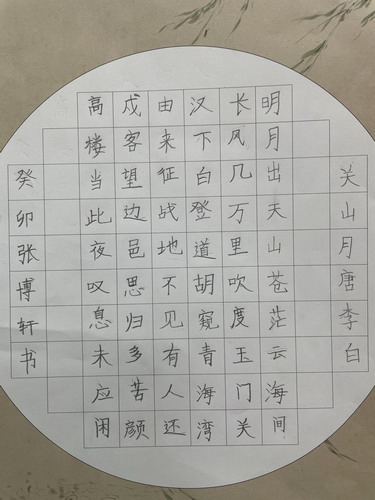 关山月唐李白
明月出天山苍茫云海间
长风几万里吹度玉门关
汉下白登道胡窥青海湾
由来征战地不见有人还
戍客望边邑思归多苦颜
高楼当此夜叹息未应闲
癸卯张博轩书